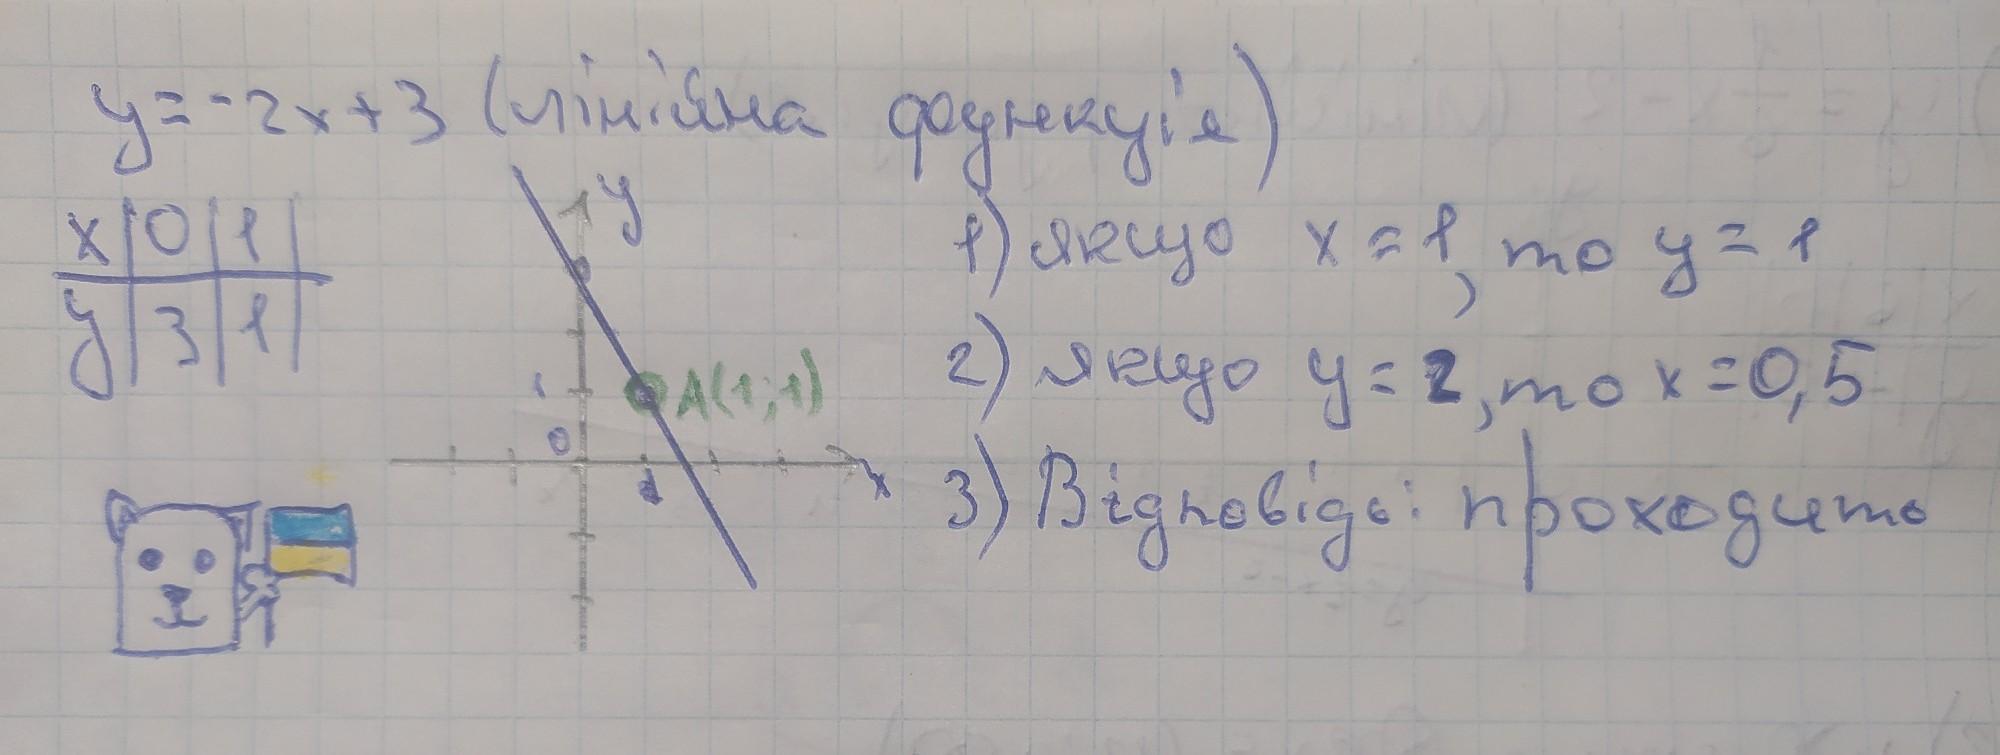 y=-2x+3 (лінійна функція)
x 0 1
y 3 1
y
1
0
1
x
A(1;1)
1) якщо x=1, то y=1
2) якщо y=2, то x=0,5
3) Відповідь: проходить